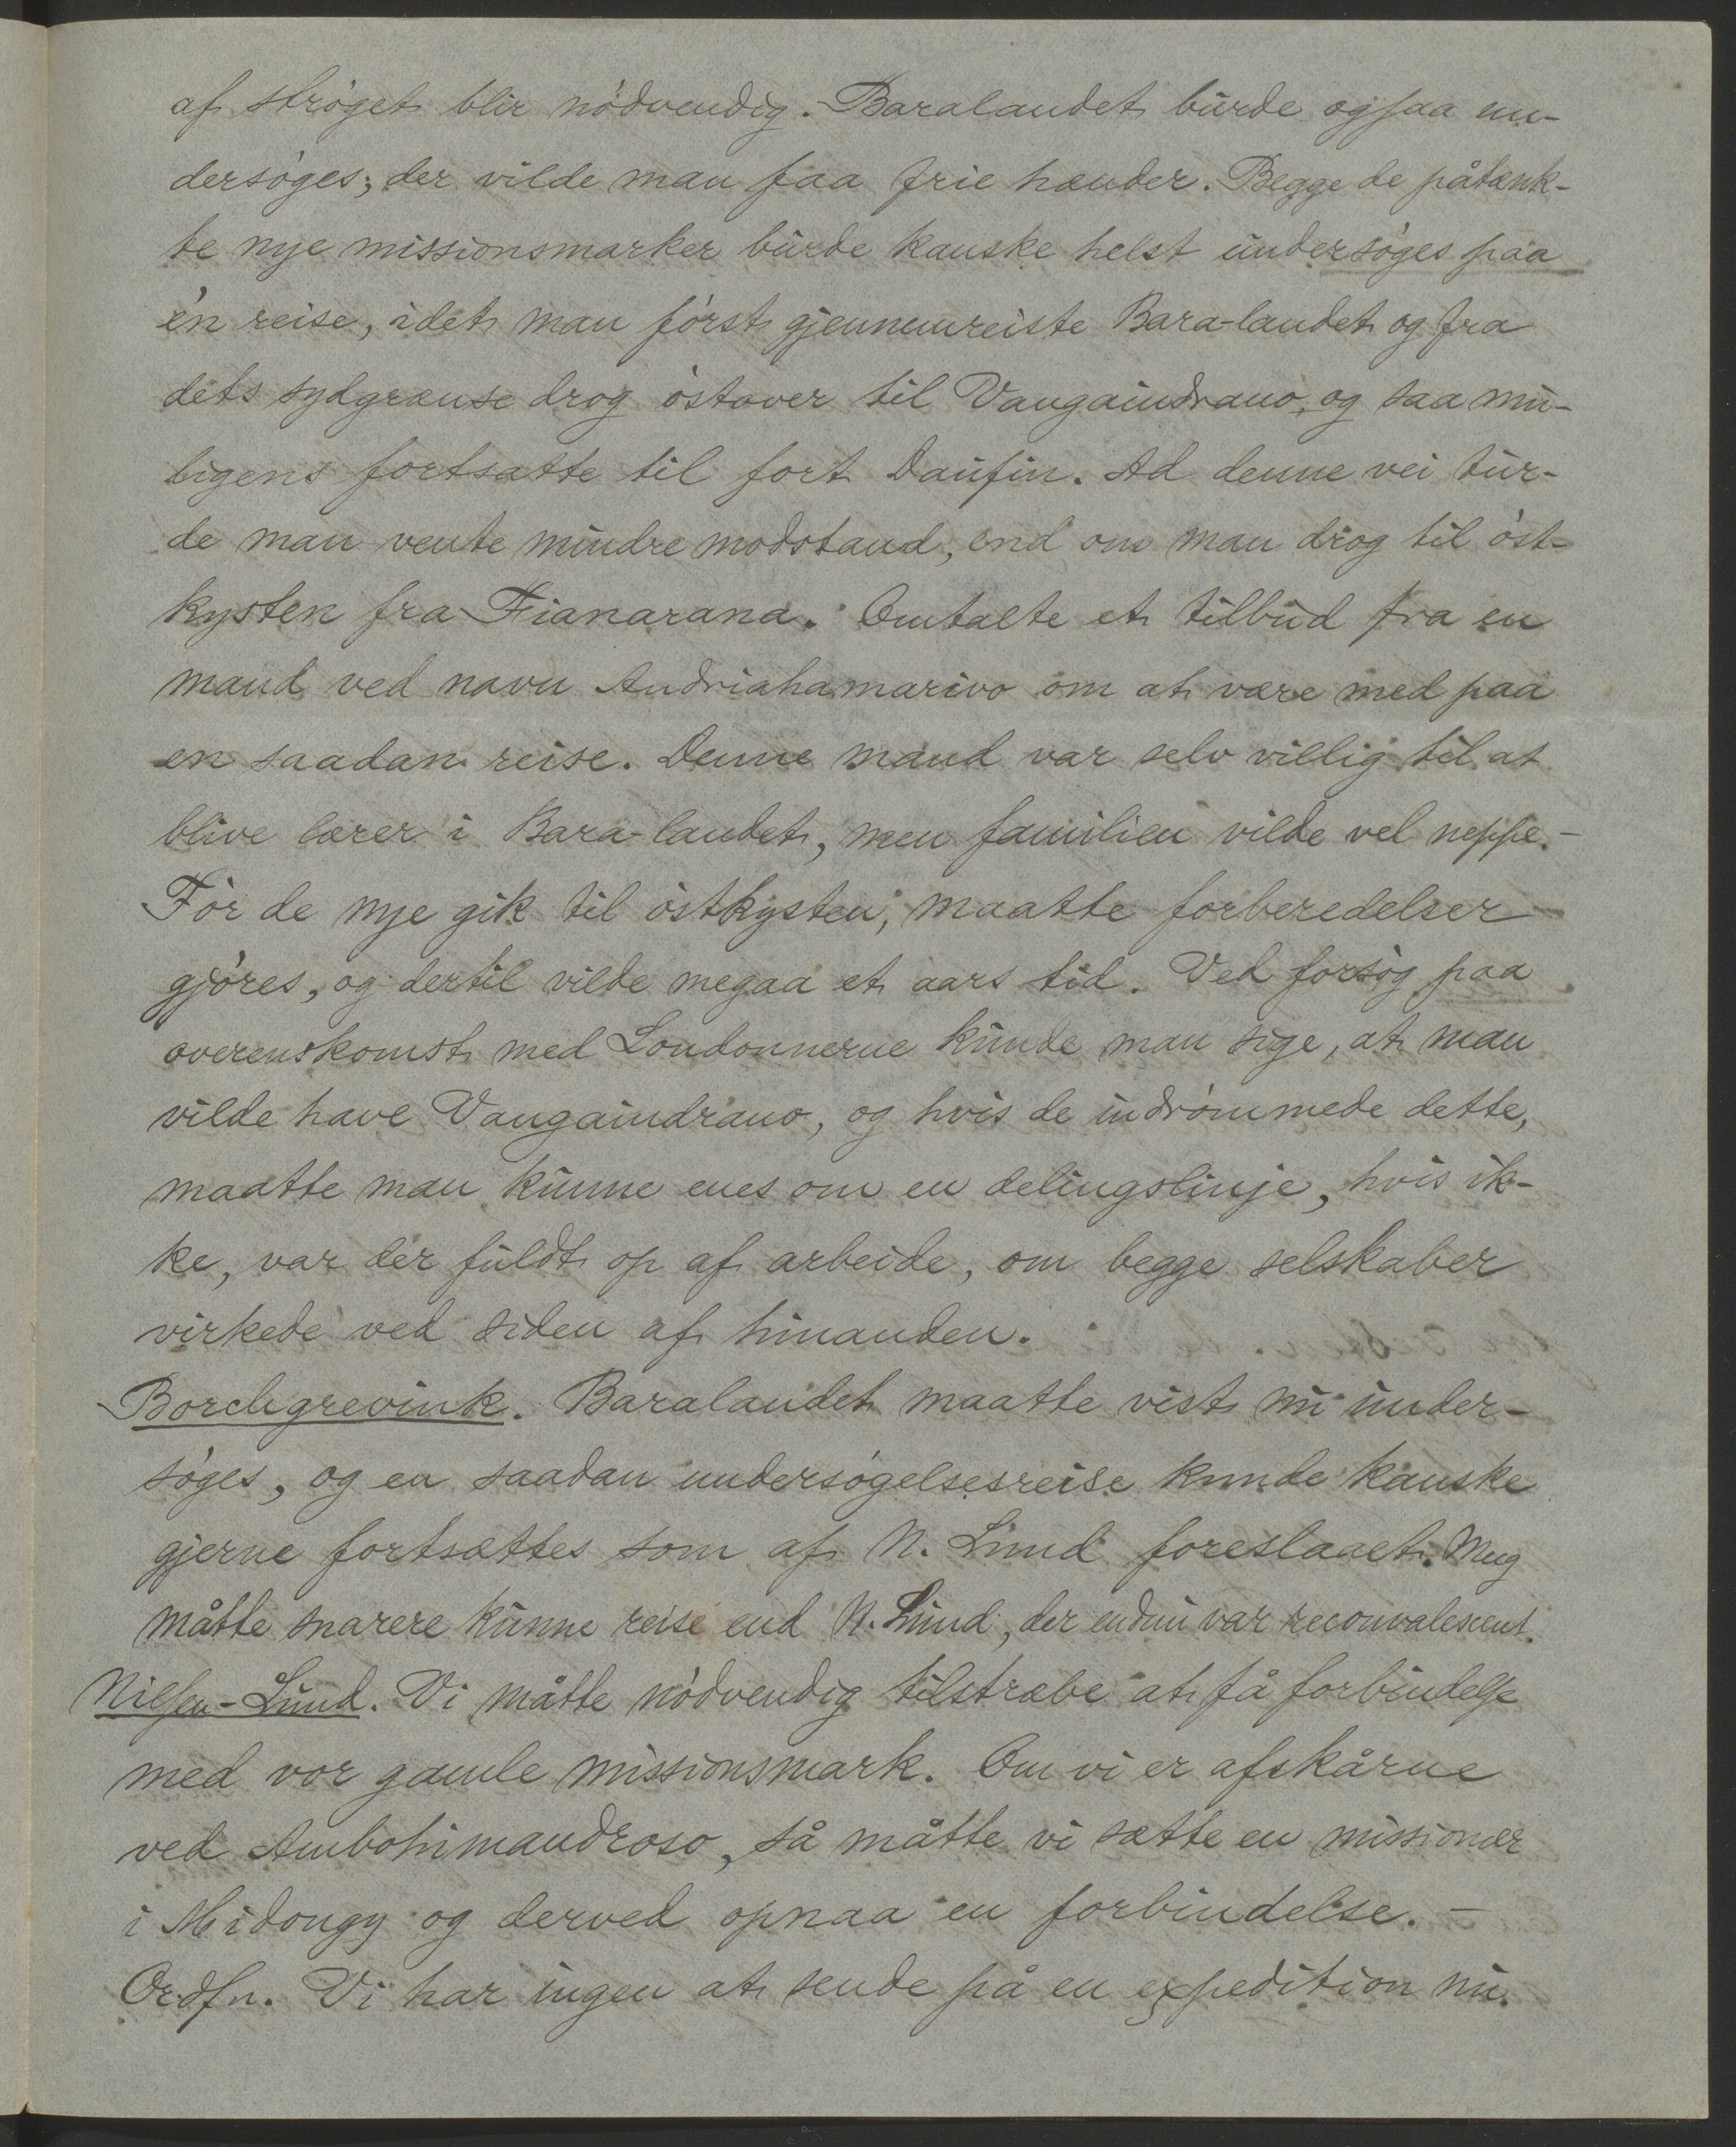 af strøget blir nødvendig. Baralandet burde ogsaa un-
dersøges; der vilde man faa frie hænder. Begge de påtænk-
te nye missionsmarker burde kanske helst undersøges paa
én reise, idet man først gjennemreiste Bara-landet og fra
dets sydgrænse drog østover til Vangaindrano, og saa mu-
ligens fortsatte til fort Daufin. Ad denne vei tur-
de man vente mindre modstand, end om man drog til øst-
kysten fra Fianarana. Omtalte et tilbud fra en
mand ved navn Andriahamarivo om at være med paa
en saadan reise. Denne mand var selv villig til at
blive lærer i Bara-landet, men familien vilde vel neppe. –
Før de nye gik til østkysten, maatte forberedelser
gjøres, og dertil vilde megaa et aars tid. Ved forsøg paa
overenskomst med Londonnerne kunde man sige, at man
vilde have Vangaindrano, og hvis de indrømmede dette,
maatte man kunne enes om en delingslinje, hvis ik-
ke, var der fuldt op af arbeide, om begge selskaber
virkede ved siden af hinanden.
Borchgrevink. Baralandet maatte vist nu under-
søges, og en saadan undersøgelsesreise kunde kanske
gjerne fortsættes som af N. Lund foreslaaet. Meg
måtte snarere kunne reise end N. Lund, der endnu var reconvalescent.
Nilsen-Lund. Vi måtte nødvendig tilstræbe at få forbindelse
med vor gamle missionsmark. Om vi er afskårne
ved Ambohimandroso, så måtte vi sætte en missionær
i Midongy og derved opnaa en forbindelse. –
Ordfn. Vi har ingen at sende på en expedition nu.